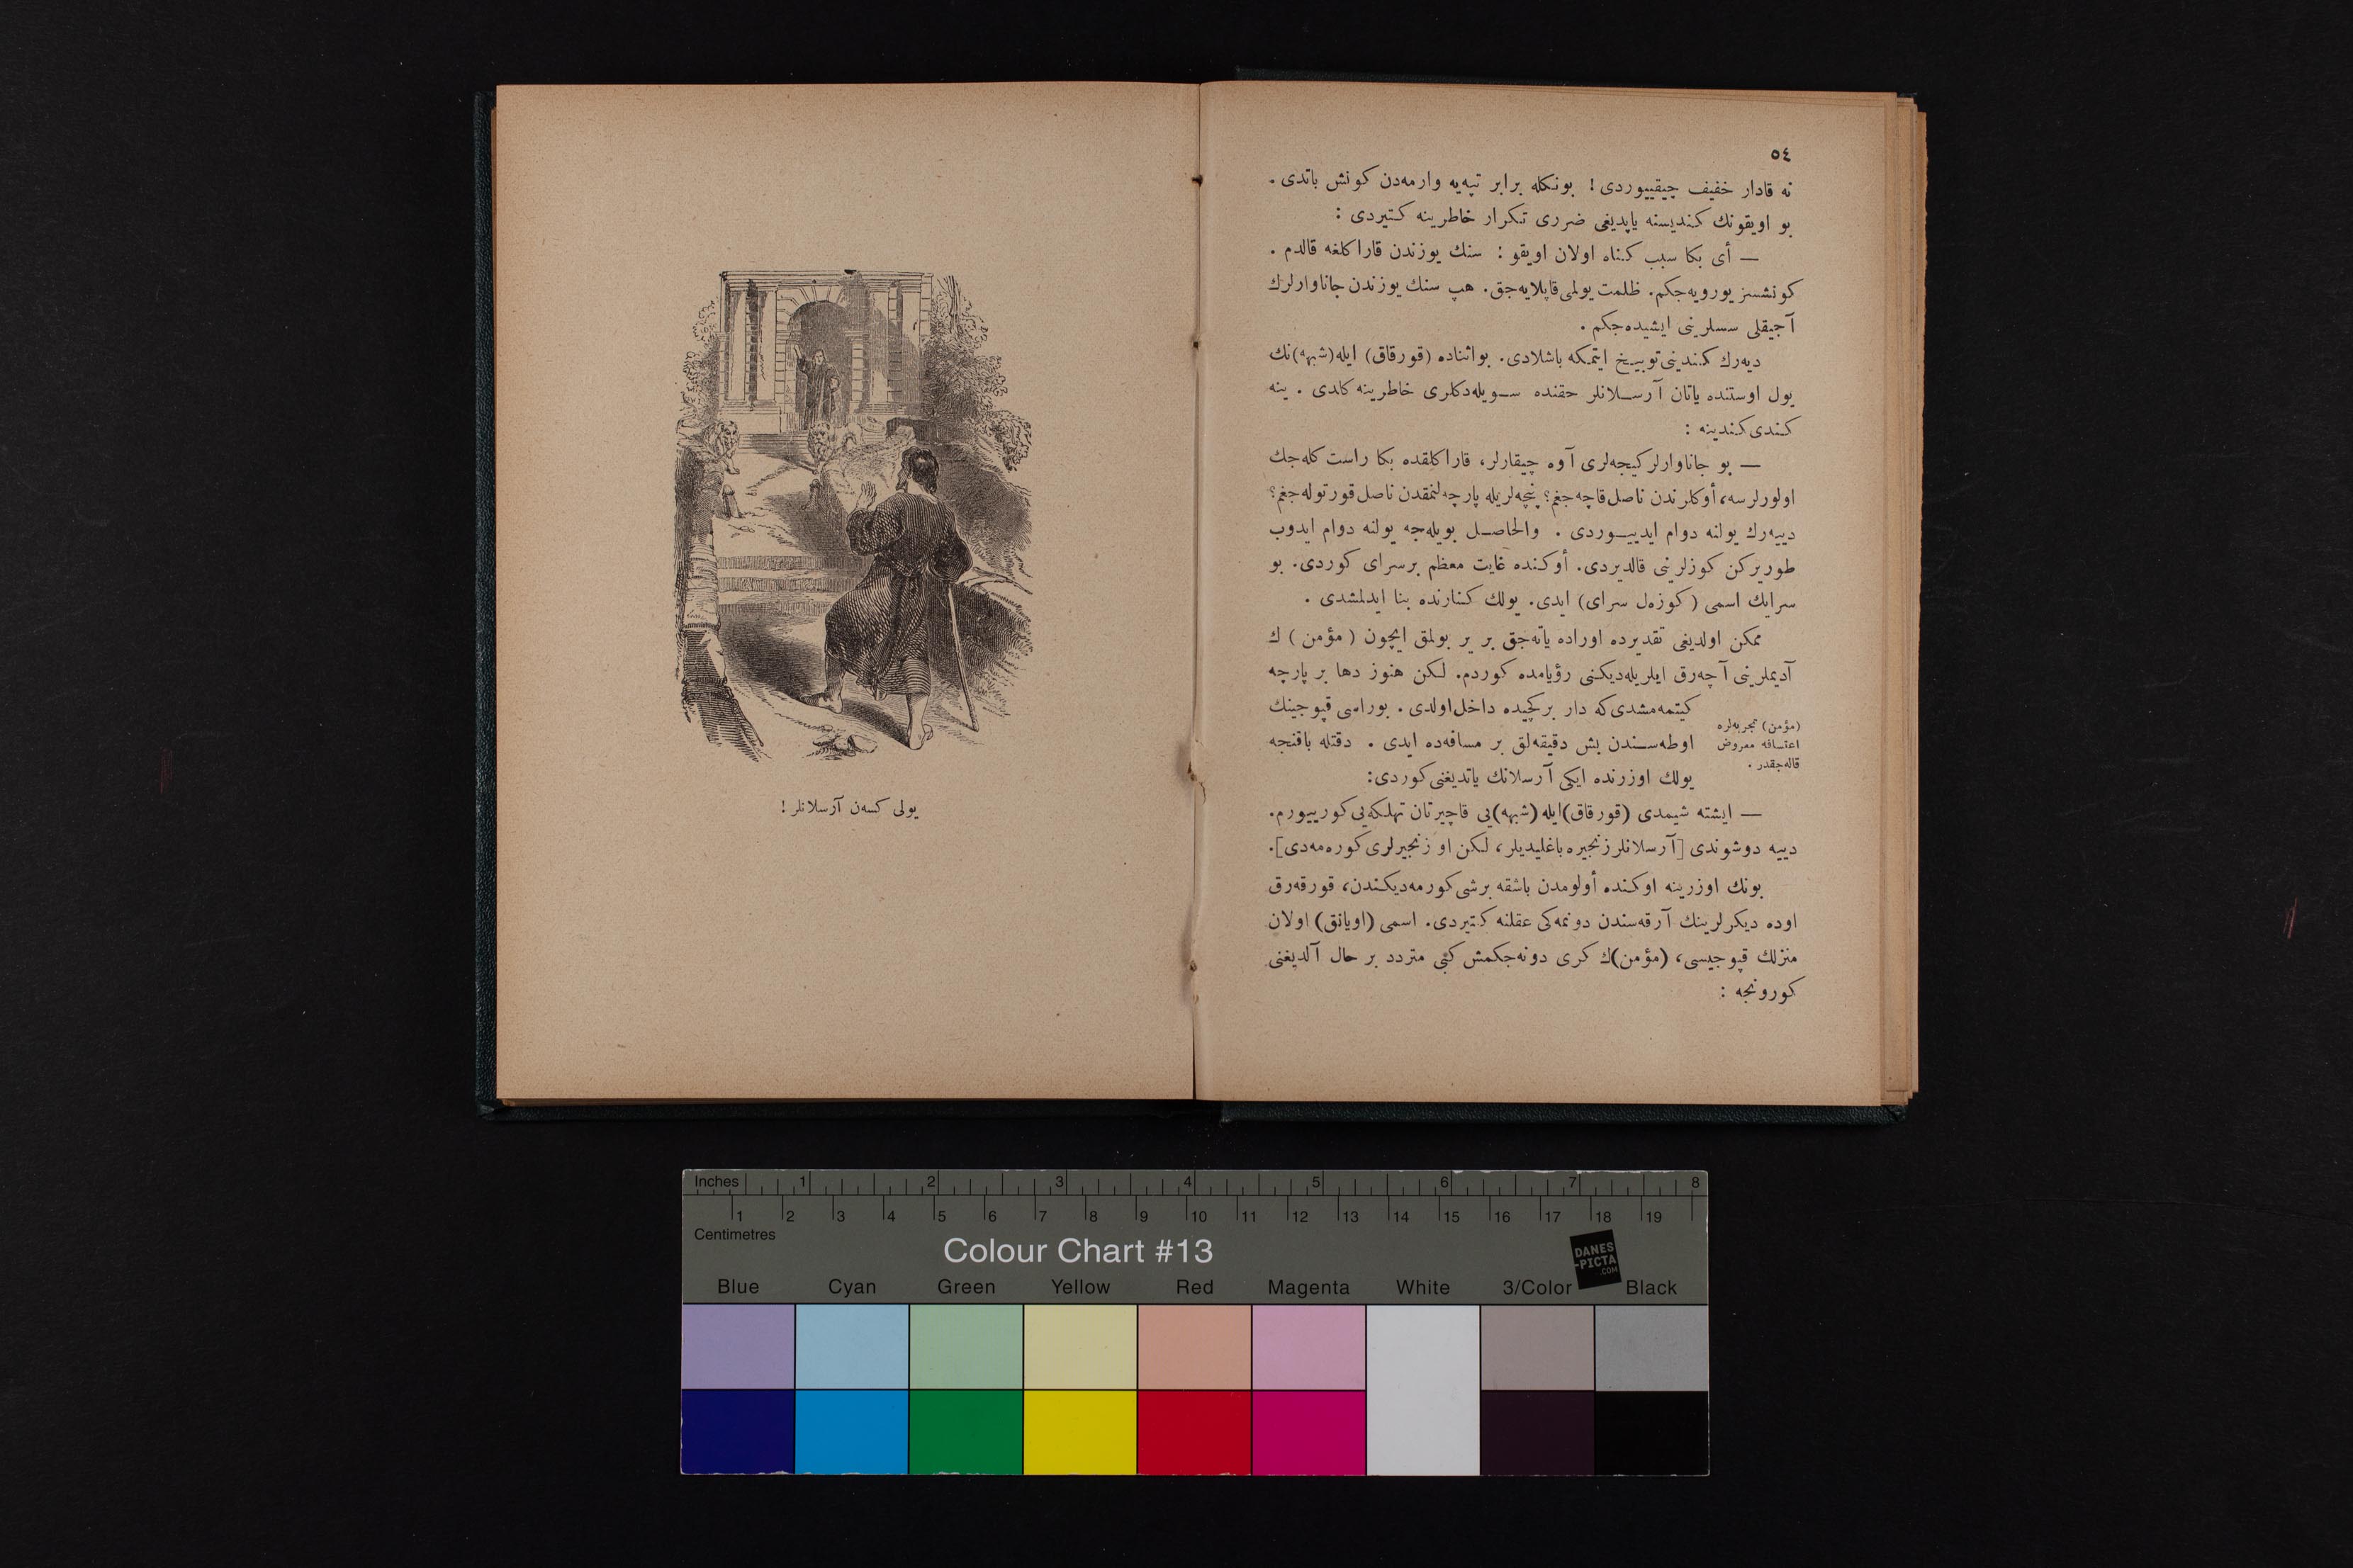 ٥٤
نه قادار خفیف چیقییوردی ! بونكله برابر تپه‌یه وارمه‌دن كونش باتدی .
بو اویقونك كندیسنه یاپدیغی ضرری تكرار خاطرینه كتیردی :
— أی بكا سبب كناه اولان اویقو : سنك یوزندن قاراكلغه قالدم .
كونشسز یورویه‌جكم. ظلمت یولمی قاپلایه‌جق. هپ سنك یوزندن جاناوارلرك
آجیقلی سسلرینی ایشیده‌جكم .
دیه‌رك كندینی توبیخ ایتمكه باشلادی. بواثناده (قورقاق) ایله (شبهه)نك
یول اوستنده یاتان آرسلانلر حقنده سویله‌دكلری خاطرینه كلدی . ینه
كندی كندینه :
— بو جاناوارلر كیجه‌لری آوه چیقارلر، قاراكلقده بكا راست كله‌جك
اولورلرسه، أوكلرندن ناصل قاچه‌جغم؟ پنچه‌لریله پارچه‌لنمقدن ناصل قورتوله‌جغم؟
دییه‌رك یولنه دوام ایدییوردی . والحاصل بویله‌جه یولنه دوام ایدوب
طوریركن كوزلرینی قالدیردی. أوكنده غایت معظم برسرای كوردی. بو
سرایك اسمی (كوزه‌ل سرای) ایدی. یولك كنارنده بنا ایدلمشدی .
ممكن اولدیغی تقدیرده اوراده یاته‌جق بر یر بولمق ایچون (مؤمن) ك
آدیملرینی آچه‌رق ایلریله‌دیكنی رؤیامده كوردم. لكن هنوز دها بر پارچه
كیتمه‌مشدی كه دار بر كچیده داخل اولدی . بوراسی قپوجینك
اوطه‌سندن بش دقیقه‌لق بر مسافه‌ده ایدی . دقتله باقنجه
یولك اوزرنده ایكی آرسلانك یاتدیغنی كوردی:
(مؤمن) تجربه‌لره
اعتسافه معروض
قاله‌جقدر .
— ایشته شیمدی (قورقاق) ایله (شبهه)یی قاچیرتان تهلكه‌یی كورییورم.
دییه دوشوندی [آرسلانلر زنجیره باغلیدیلر، لكن او زنجیرلری كوره‌مه‌دی].
بونك اوزرینه اوكنده أولومدن باشقه برشی كورمه‌دیكندن، قورقه‌رق
اوده دیكرلرینك آرقه‌سندن دونمه‌كی عقلنه كتیردی. اسمی (اویانق) اولان
منزلك قپوجیسی، (مؤمن)ك كری دونه‌جكمش كبی متردد بر حال آلدیغنی
كورونجه :
یولی كسه‌ن آرسلانلر !
Inches 1 2 3 4 5 6 7 8
1 2 3 4 5 6 7 8 9 10 11 12 13 14 15 16 17 18 19
Centimetres
Colour Chart #13
DANES
-PICTA
.COM
Blue Cyan Green Yellow Red Magenta White 3/Color Black